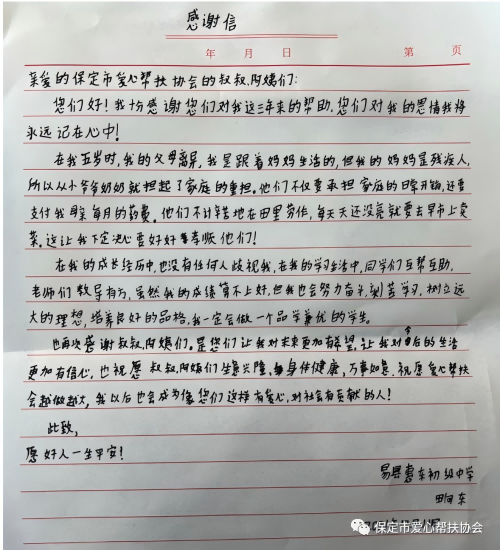 感谢信
年 月 日 第 页
亲爱的保定市爱心帮扶协会的叔叔、阿姨们:
您们好!我十分感谢您们对我这三年来的帮助。您们对我的恩情我将
永远记在心中!
在我五岁时,我的父母离异,我是跟着妈妈生活的,但我的妈妈是残疾人,
所以从小爷爷奶奶就担起了家庭的重担。他们不仅要承担家庭的日常开销,还要
支付我母亲每月的药费。他们不计辛苦地在田里劳作,每天天还没亮就要去早市上卖
菜。这让我下定决心要好好孝顺他们!
在我的成长经历中,也没有任何人歧视我,在我的学习生活中,同学们互帮互助,
老师们教导有方,虽然我的成绩算不上好,但我也会努力奋斗,刻苦学习,树立远
大的理想,培养良好的品格,我一定会做一个品学兼优的学生。
也再次感谢叔叔、阿姨们。是您们让我对未来更加有希望,让我对今后的生活
更加有信心,也祝愿叔叔、阿姨们生意兴隆,身体健康,万事如意。祝愿爱心帮扶
会越做越大,我以后也会成为像您们这样有爱心,对社会有贡献的人!
此致,
愿好人一生平安!
易县惠东初级中学
田向东
保定市爱心帮扶协会